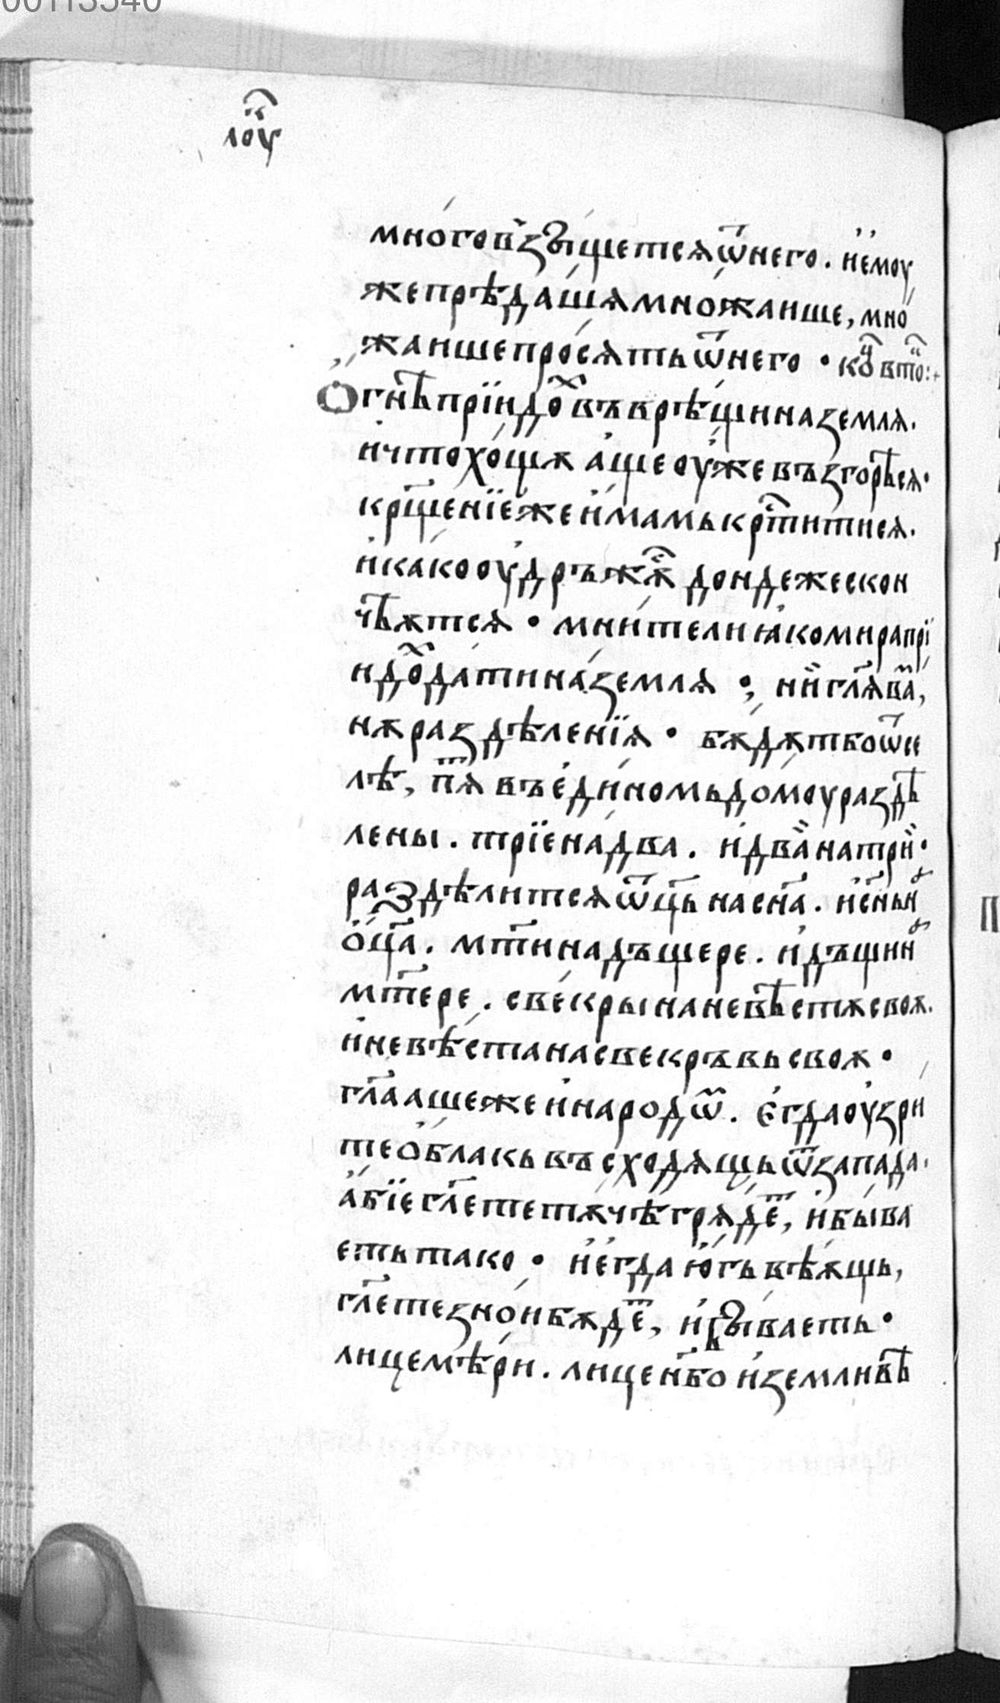 00113540
лоу҆ⷦ҇
мно́го в꙽зы́щетсѧ ѿ него . и҆ е҆моу
же прѣдашѧ мно́жаише, мно́
жаише про́сѧть ѿ него • ко҆ⷰ҇ вто҆ⷬ҇ :+
Огнѣ прїидоⷯ въврѣщи на землѧ .
и҆ что хо́щѫ а҆ще оу҆же възгорѣсѧ •
крⷭ҇щенїе же и҆мамь крⷭ҇титисѧ .
и҆ како оу҆дръжѫⷭ҇ дондеже скон
чѣѫтсѧ • мни́те ли ꙗко мира прї
идоⷯ да́ти на́ землѧ •, ни̏ гл҃ѧ ваⷨ,
нѫ раздѣленїѧ • бѫ́дѫт бо ѿ се
лѣ, пⷮѧ въ е҆ди́номь домоу раздѣ
лены . трїе на́ два . и҆ два̏ на трѝ •
раздѣлитсѧ ѿц҃ь на сн҃а . и҆ сн҃ь н̾
о҆ц҃а . мт҃и на дъщере . и҆ дъщи н̾
мт҃ере . све́кры на невѣстѫ своѧ .
и҆ невѣ́ста на свекръвь своѫ •
гл҃ааше же и҆ народѡⷨ . є҆гда оу҆зри
те о҆́блакь въсходѧщь ѿ запада .
а҆́бїе гл҃ете тѫ́чѣ грѧдеⷮ, и҆ быва
еть тако • и҆ е҆гда ю҆гь вѣѫщь,
гл҃ете зно́и бѫдеⷮ, и҆ бываеть •
лицемѣ́ри . лице н҃бо и҆ земли вѣ